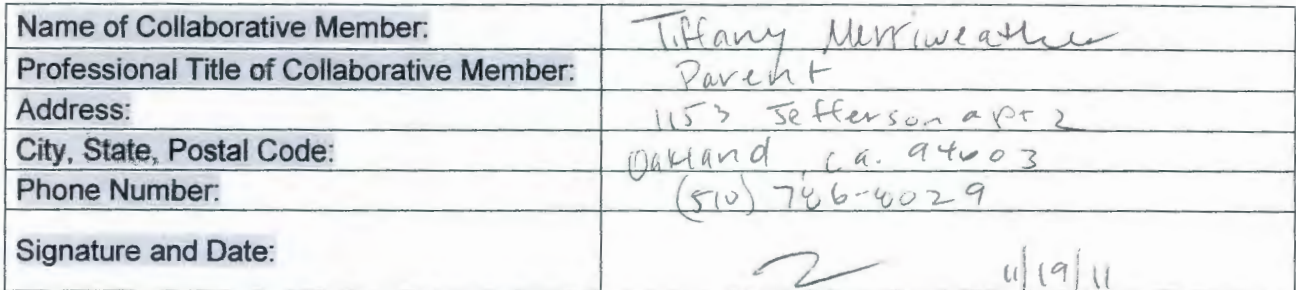 Name of Collaborative Member: Tiffany Merriweather
Professional Title of Collaborative Member: Parent
Address: 1153 Jefferson apt 2
City, State, Postal Code: Oakland, ca. 94603
Phone Number: (510)
Signature and Date: 11/19/11